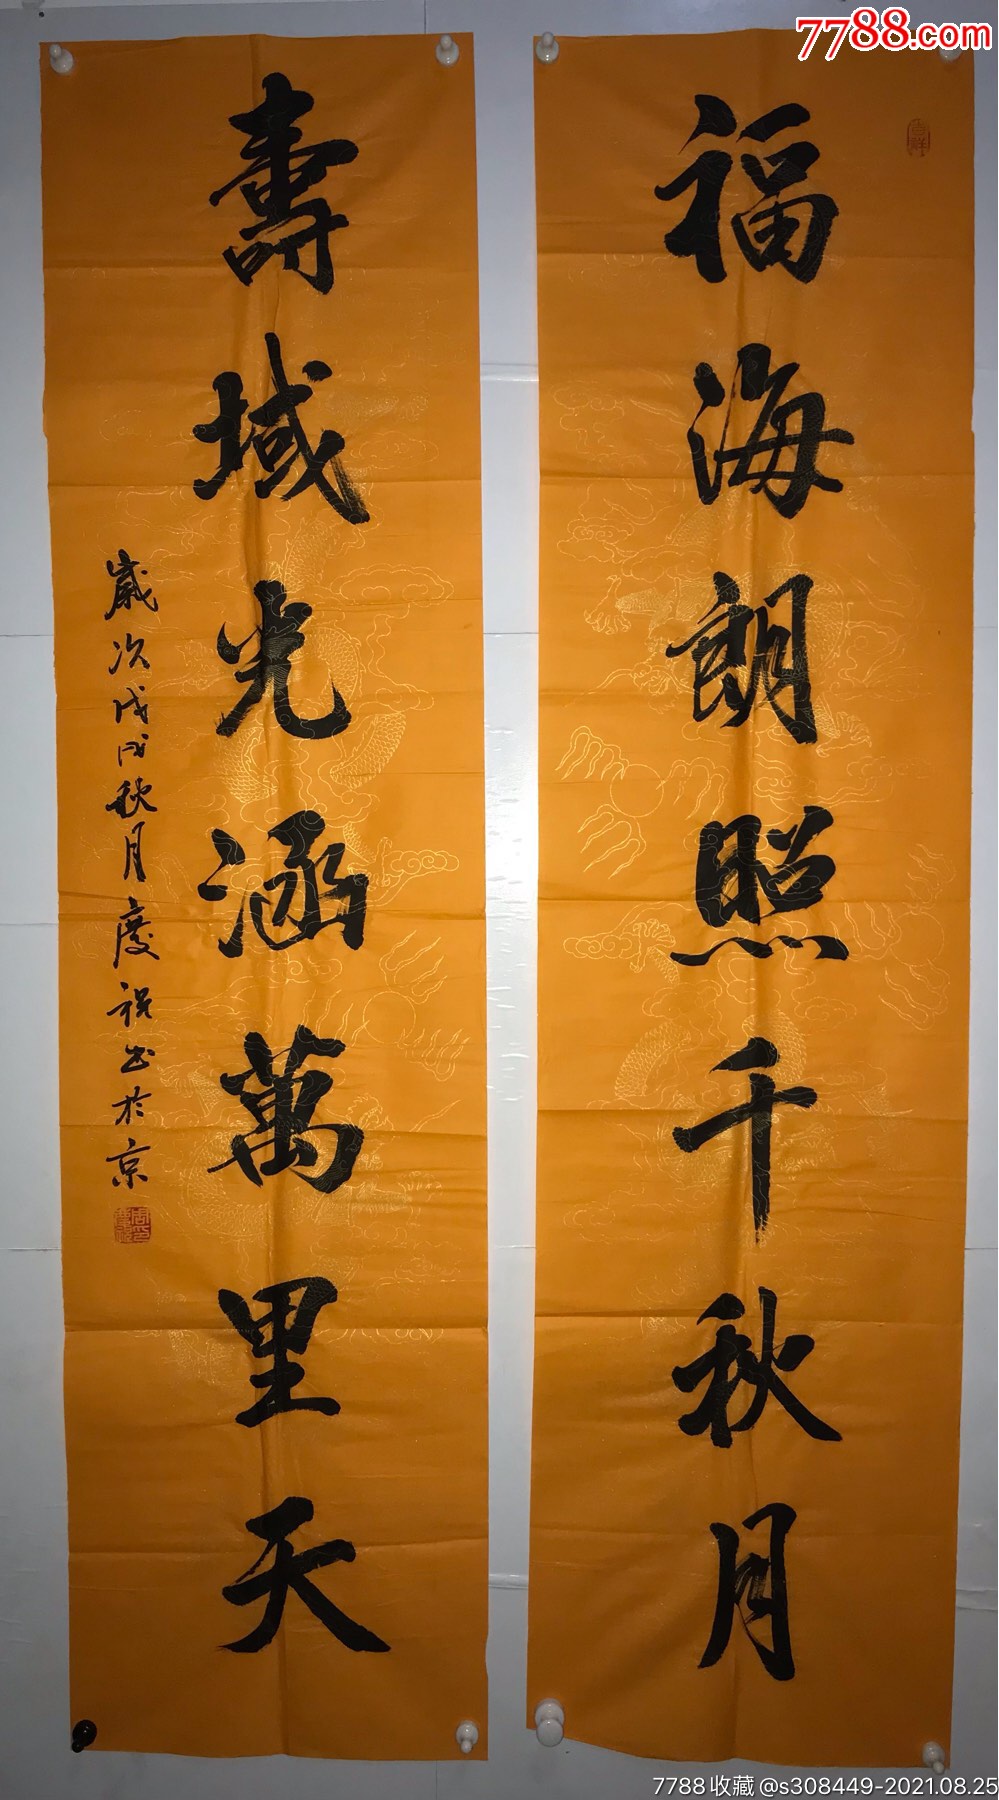 7788.com
福海朗照千秋月
壽域光涵萬里天
歲次戊戌秋月慶祝書於京
7788收藏@s308449-2021.08.25